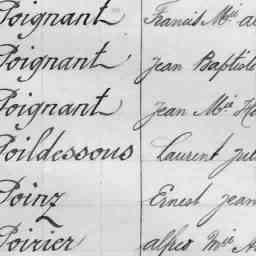 Poignant Francis Mie al
Poignant Jean Baptiste
Poignant Jean Mie
Poildessous Laurent Jul
Poinz Ernest Jean
Poirier Alfred Mie